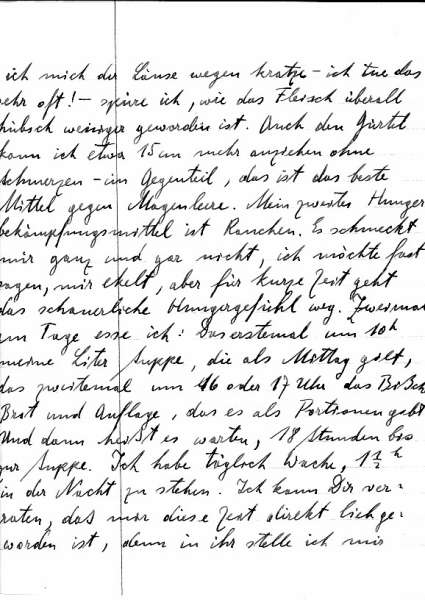 ich mich der Läuse wegen kratze – ich tue das
sehr oft! – spüre ich, wie das Fleisch überall
hübsch weniger geworden ist. Auch den Gürtel
kann ich etwa 15 cm mehr anziehen ohne
Schmerzen – im Gegenteil, das ist das beste
Mittel gegen Magenleere. Mein zweites Hunger
bekämpfungsmittel ist Rauchen. Es schmeckt
mir ganz und gar nicht, ich möchte fast
sagen, mir ekelt, aber für kurze Zeit geht
das schauerliche Hungergefühl weg. Zweimal
am Tage esse ich: Das erstemal um 10h
meine Liter Suppe, die als Mittag gilt,
das zweitemal um 16 oder 17 Uhr das
Brot und Auflage, das es als Portionen gibt
Und dann heißt es warten, 18 Stunden bis
zur Suppe. Ich habe täglich Wache, 1 1/2 h
in der Nacht zu stehen. Ich kann Dir ver-
raten, daß mir diese Zeit direkt lieb ge-
worden ist, denn in ihr stelle ich mir